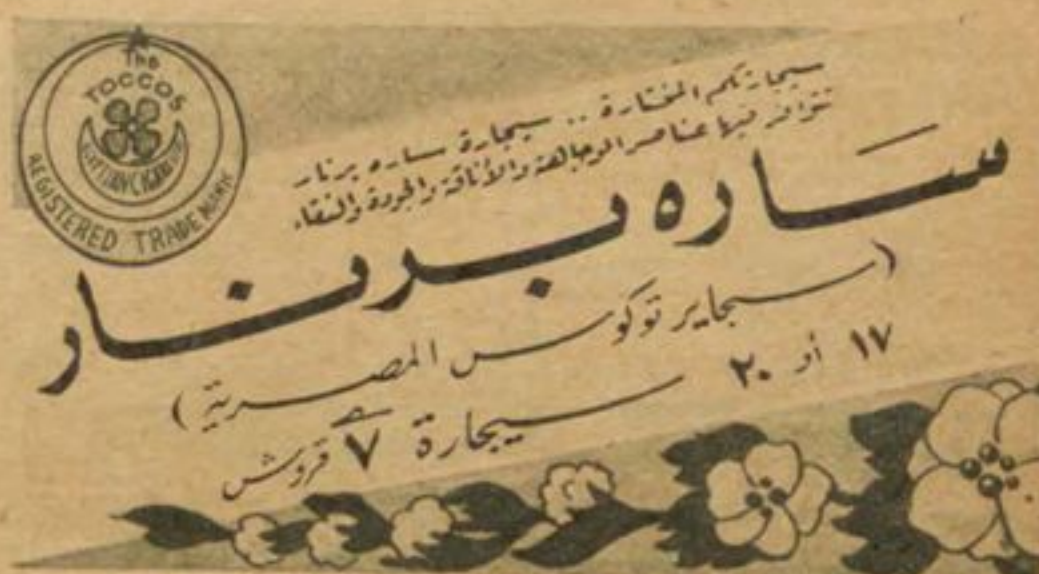 The
TOCCOS
EGYPTIAN CIGARETTES
REGISTERED TRADE MARK
سيجارتكم المختارة .. سيجارة ساره برنار
تتوافر فيها عناصر الوجاهة والأناقة والجودة والنقاء
ساره برنار
(سجاير توكوس المصرية)
١٧ أو ٢٠ سيجارة ٧ قروش